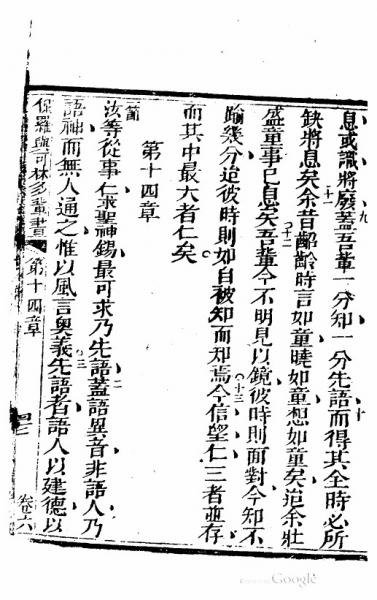 息或識將廢蓋吾輩一分知一分先語而得其全時必所
缺將息矣余昔齠齡時言如童曉如童想如童矣迨余壯
盛童事已息矣吾輩今不明見以鏡彼時則面對今知不
踰幾分迨彼時則如自被知而知焉今信望仁三者並存
而其中最大者仁矣
第十四章
汝等從事仁求聖神錫最可求乃先語蓋語異音非語人乃
語神而無人通之惟以風言奧義先語者語人以建德以
保羅與可林多輩書 第十四章
九
十
十一
十二
十三
節
二
三
Google